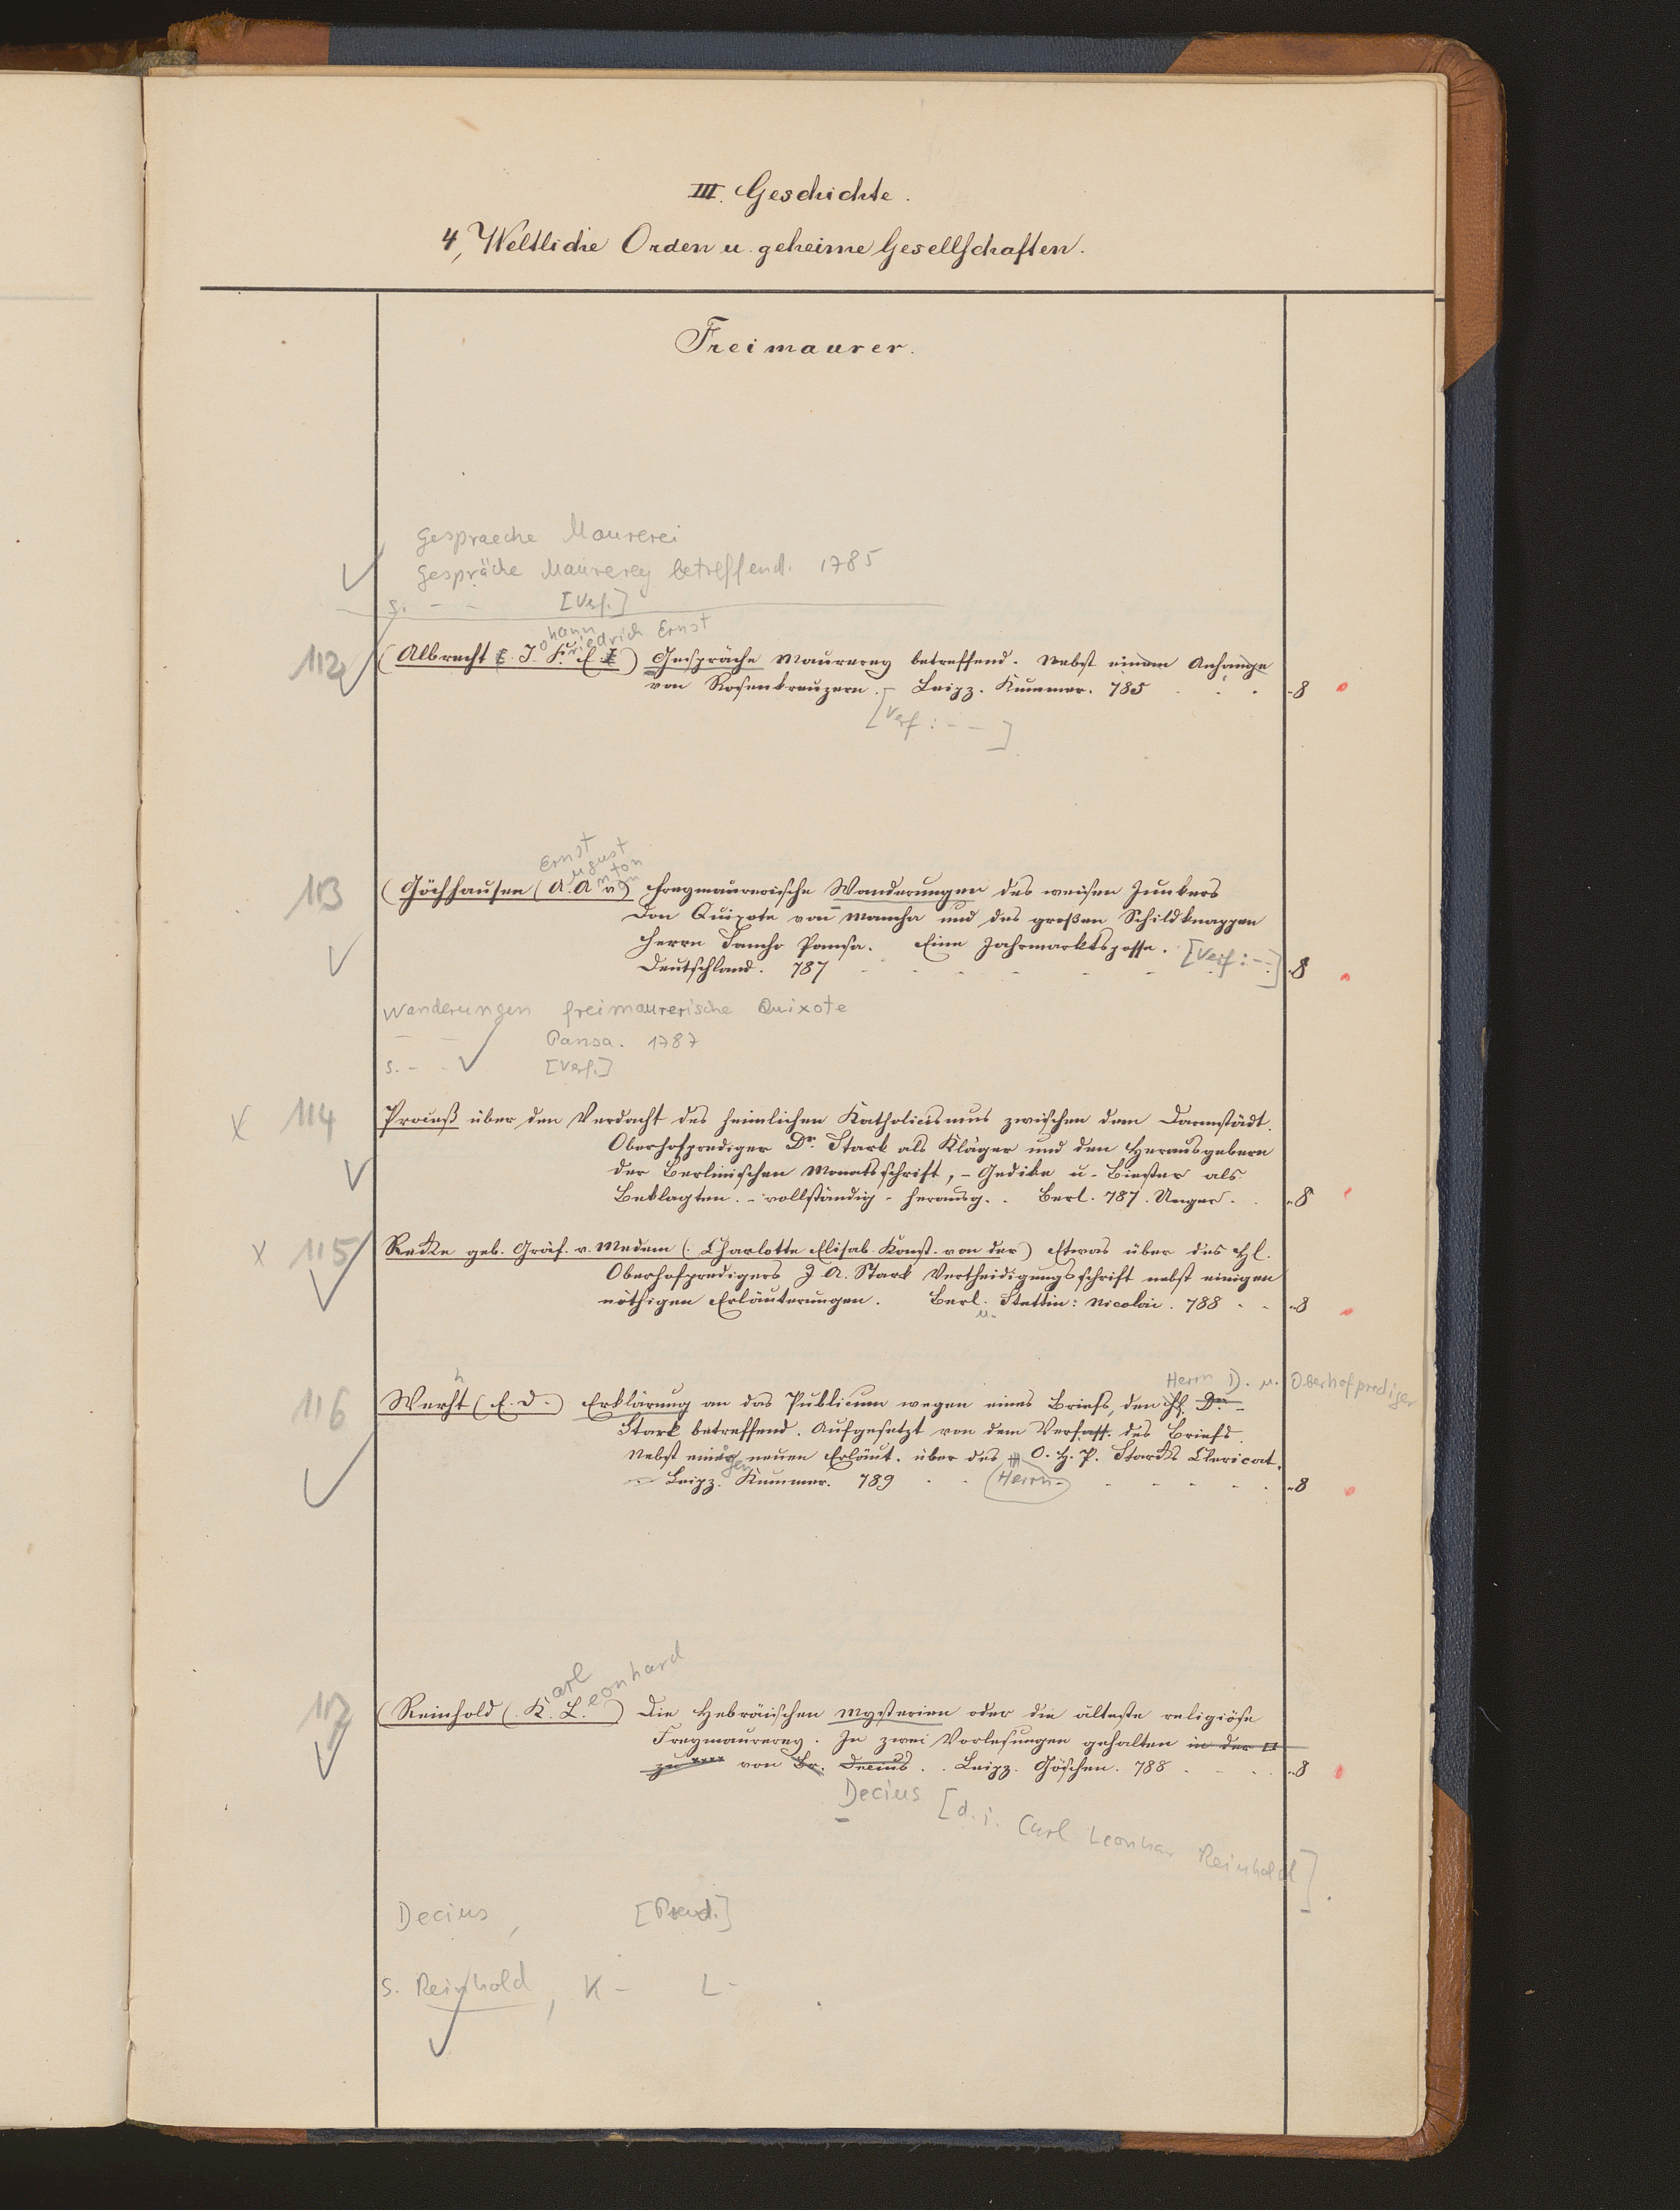 III. Geschichte.
4, Weltliche Orden u. geheime Gesellschaften.
Freimaurer.
Gespraeche Maurerei
Gespräche Maurerey betreffend. 1785
s. - - [Verf.]
ohann riedrich Ernst
112 (Albrecht J. F. E.) Gespräche Maurerey betreffend. Nebst einem Anhange
von Rosenkreuzern. - Leipz. Kummer. 785 - 8
[Verf: - - ]
Ernst ugust nton on
113 (Göchhausen (A. A v.) Freymaurerische Wanderungen des weisen Junkers
Don Quixote von Mancha und des großen Schildknappen
Herrn Sancho Pansa. Eine Jahrmarktsposse. [Verf: - -]
Deutschland. 787 - 8
Wanderungen freimaurerische Quixote
- - Pansa. 1787
s. - - [Verf.]
x 114 Proceß über den Verdacht des heimlichen Katholicismus zwischen dem Darmstädt.
Oberhofprediger Dr. Stark als Kläger und den Herausgebern
der Berlinischen Monatsschrift, - Gedike u. Biester als
Beklagten. - vollständig - herausg. . Berl. 787. Unger. - 8
x 115 Recke geb. Gräf. v. Medem (Charlotte Elisab. Konst. von der) Etwas über des H.
Oberhofpredigers J A. Stark Vertheidigungsschrift nebst einigen
nöthigen Erläuterungen. Berl. u. Stettin: Nicolai. 788 - - 8
h Herrn D. u. Oberhofprediger
116 Werht (E. D.) Erklärung an das Publicum wegen eines Briefs, den H. Dr.
Stark betreffend. Aufgesetzt von dem Verfass. des Briefs.
Nebst einigen neuen Erläut. über des H O. H. P. Starcks Clericat.
- Leipz. Kummer. 789 - - (Herrn) - - - - - 8
arl eonhard
117 (Reinhold (K. L.) Die Hebräischen Mysterien oder die älteste religiöse
Freymaurerey. In zwei Vorlesungen gehalten in der □
zu **** von Br. Decius. . Leipz. Göschen. 788 - 8
Decius [d. i. Carl Leonhar Reinhold].
Decius, [Pseud.]
s. Reinhold, K - L -